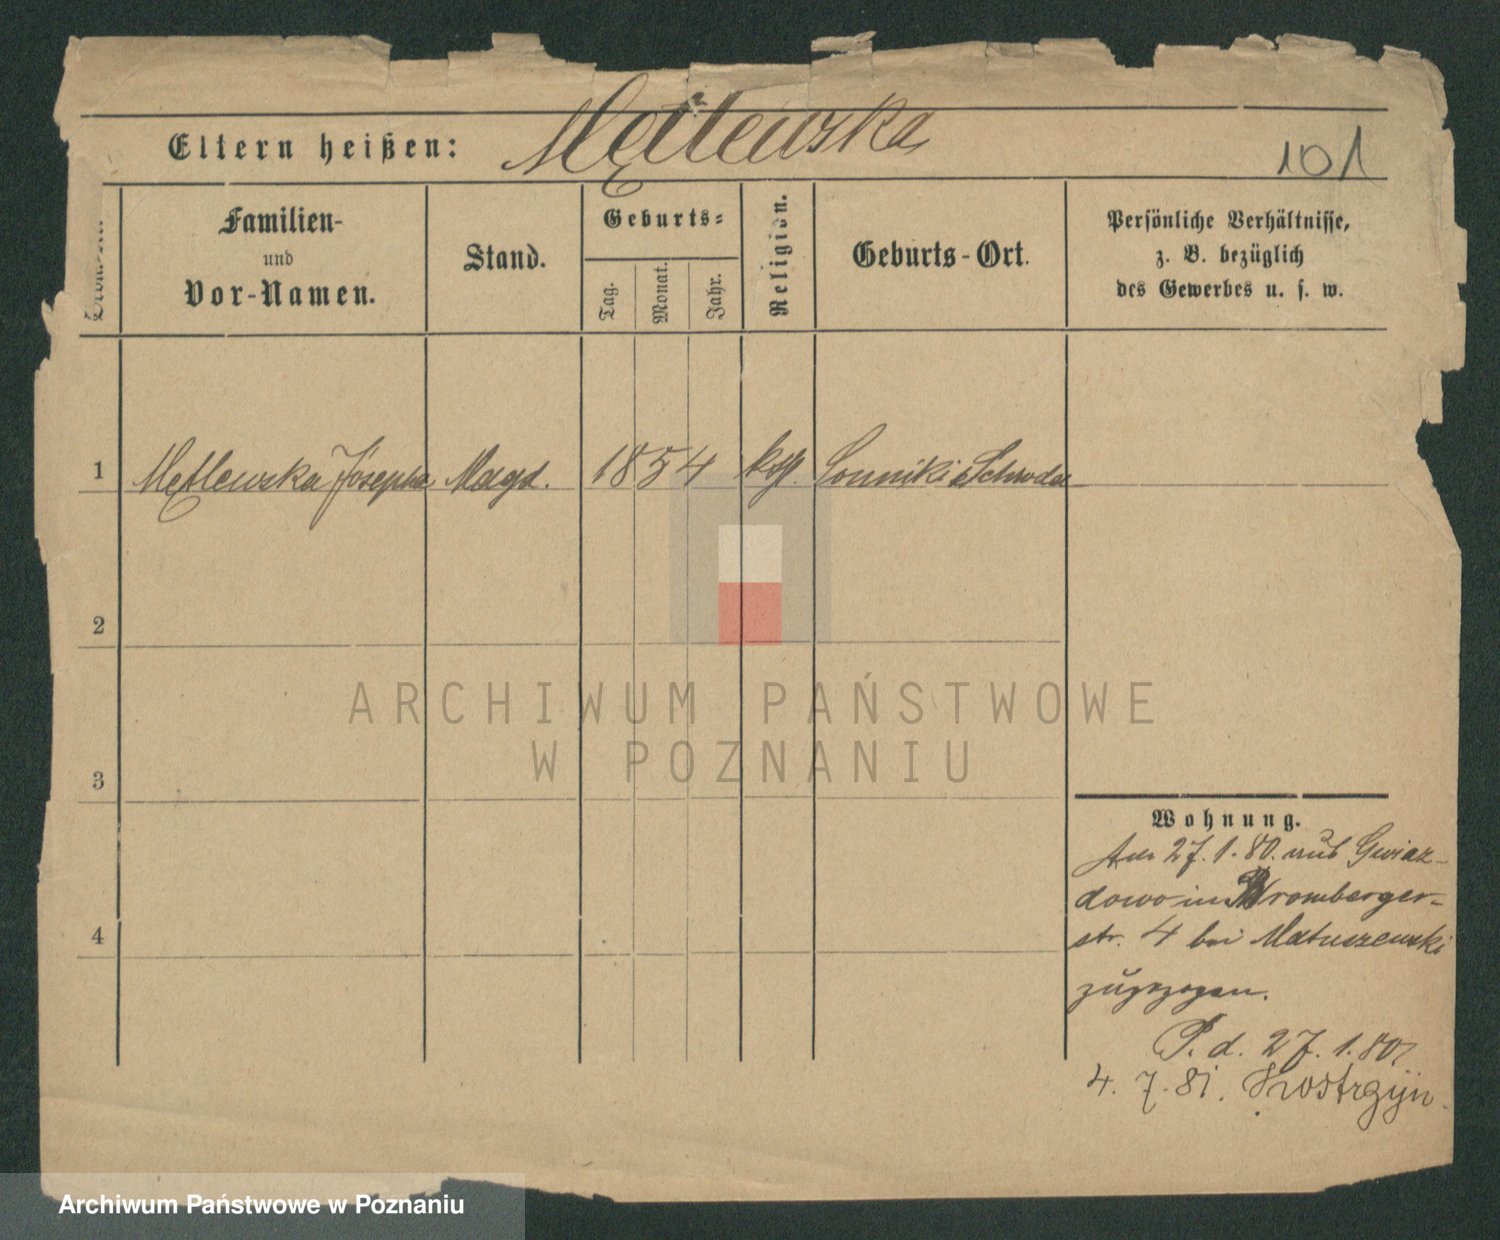 Eltern heißen: Mętlewska
101
Familien-
und
Vor-Namen.
Stand.
Geburts-
Tag. Monat. Jahr.
Religion.
Geburts-Ort.
Persönliche Verhältnisse,
z. B. bezüglich
des Gewerbes u. s. w.
1 Mętlewska Josepha Magd. 1854 kath. Schroda
2
3
4
ARCHIWUM PAŃSTWOWE
W POZNANIU
Wohnung.
Am 27.1.80. aus Gwiaz-
dowo in Bromberger-
str. 4 bei Matuszewski
zugezogen.
P. d. 27.1.80
4.7.81. Kostrzyn
Archiwum Państwowe w Poznaniu